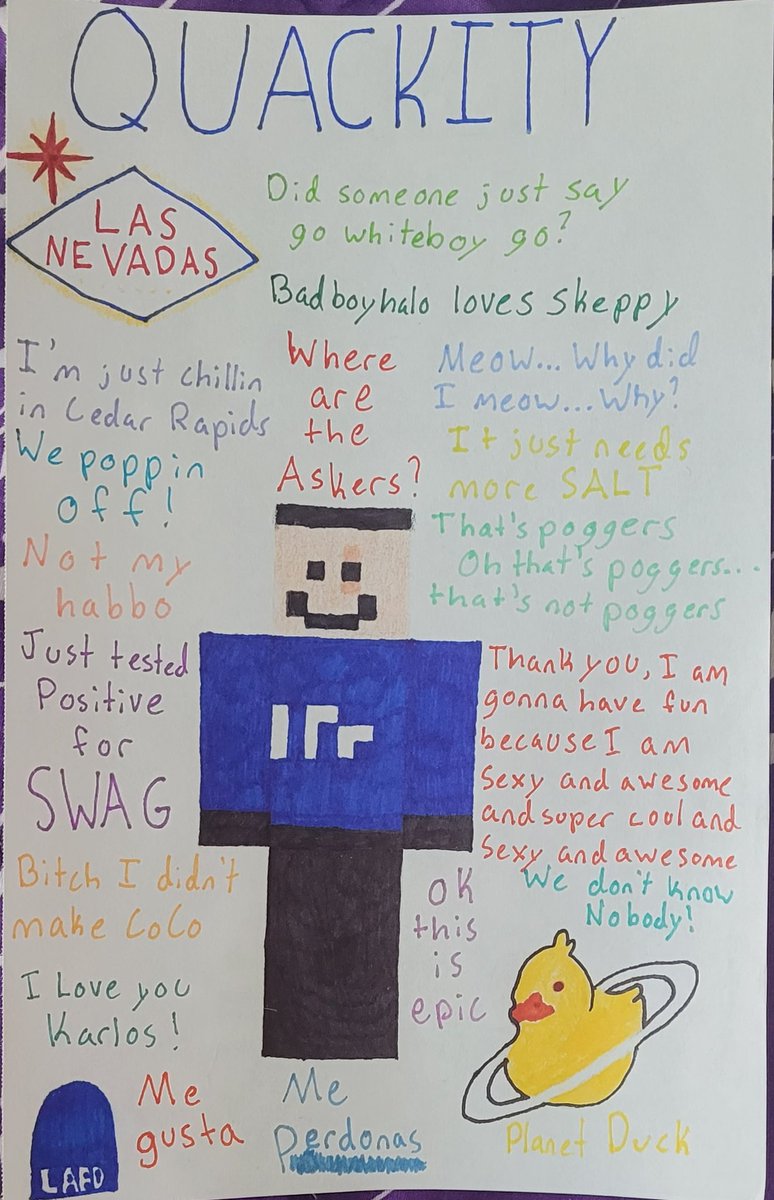 QUACKITY
LAS
NEVADAS
Did someone just say
go whiteboy go?
Badboyhalo loves Skeppy
I'm just chillin
in Cedar Rapids
Where
are
the
Askers?
Meow... Why did
I meow... Why?
It just needs
more SALT
We poppin
off!
That's poggers
Oh that's poggers...
that's not poggers
Not my
habbo
Just tested
Positive
for
SWAG
Thank you, I am
gonna have fun
because I am
Sexy and awesome
and super cool and
Sexy and awesome
Bitch I didn't
make CoCo
ok
this
is
epic
We don't know
Nobody!
I Love you
Karlos!
Me
gusta
Me
Perdonas
Planet Duck
LAFD